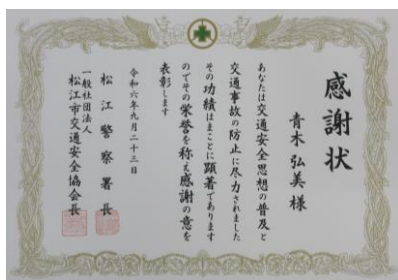 感謝状
青木弘美様
あなたは交通安全思想の普及と
交通事故の防止に尽力されました
その功績はまことに顕著であります
のでその栄誉を称え感謝の意を
表彰します
令和六年九月二十三日
松江警察署長
一般社団法人
松江市交通安全協会長